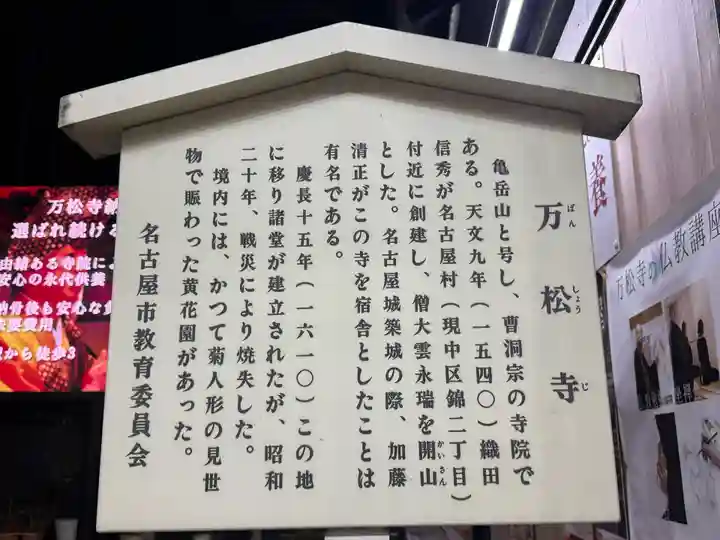 万松寺
ばんしょうじ
亀岳山と号し、曹洞宗の寺院で
ある。天文九年(一五四〇)織田
信秀が名古屋村(現中区錦二丁目)
付近に創建し、僧大雲永瑞を開山
かいさん
とした。名古屋城築城の際、加藤
清正がこの寺を宿舎としたことは
有名である。
慶長十五年(一六一〇)この地
に移り諸堂が建立されたが、昭和
二十年、戦災により焼失した。
境内には、かつて菊人形の見世
物で賑わった黄花園があった。
名古屋市教育委員会
万松寺納
選ばれ続ける
由緒ある寺院によ
安心の永代供養
納骨後も安心な
から徒歩3
養
万松寺の仏教講座